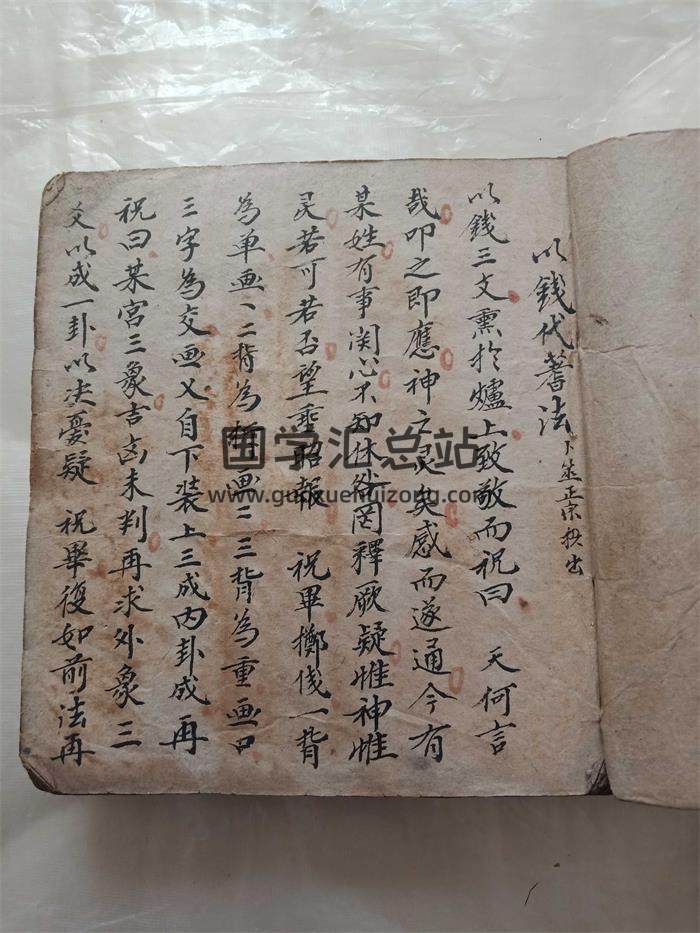 以錢代蓍法 卜筮正宗抄出
以錢三文熏於爐上致敬而祝曰 天何言
哉叩之即應神之灵矣感而遂通今有
某姓有事関心不知休咎罔釋厥疑惟神惟
灵若可若否望垂昭報 祝畢擲伐一背
為单画丶二背為拆画〻三背為重画口
三字為交画乂自下装上三成内卦成再
祝曰某宮三象吉凶未判再求外象三
爻以成一卦以决憂疑 祝畢復如前法再
国学汇总站
www.guoxuehuizong.com